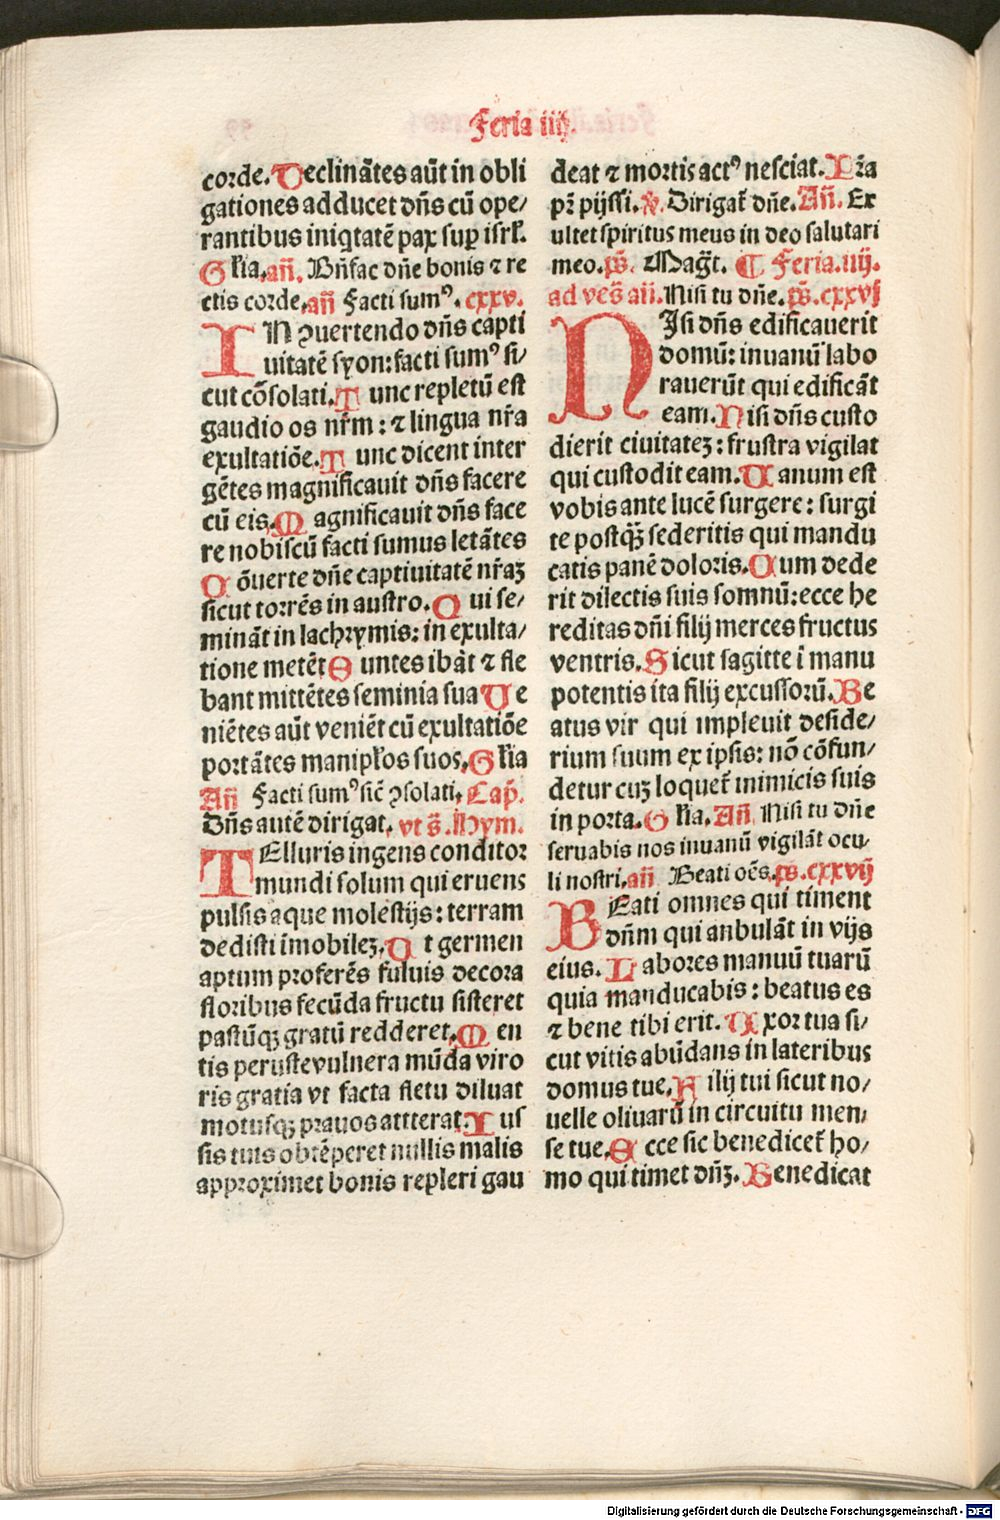 Feria iiij.
corde. Declinãtes aũt in obli
gationes adducet dñs cũ ope/
rantibus iniqtatē pax sup isrł.
Głia. añ. Bñfac dñe bonis ⁊ re
ctis corde. añ Facti sumꝰ. cxxv.
IN ꝯuertendo dñs capti
uitatē syon: facti sumꝰ si/
cut cõsolati. Tunc repletũ est
gaudio os nr̃m: ⁊ lingua nr̃a
exultatiõe. Tunc dicent inter
gẽtes magnificauit dñs facere
cũ eis. Magnificauit dñs face
re nobiscũ facti sumus letãtes
Cõuerte dñe captiuitatē nr̃aꝫ
sicut torrẽs in austro. Qui se/
minãt in lachrymis: in exulta/
tione metẽt Euntes ibãt ⁊ fle
bant mittẽtes seminia sua Ve
niẽtes aũt veniẽt cũ exultatiõe
portãtes manipłos suos. Głia
Añ Facti sumꝰ sic̃ ꝯsolati. Cap̃.
Dñs autē dirigat. vt s̃. Hym.
TElluris ingens conditor
mundi solum qui eruens
pulsis aque molestijs: terram
dedisti ĩmobileꝫ. Ut germen
aptum proferẽs fuluis decora
floribus fecũda fructu sisteret
pastũqꝫ gratũ redderet. Men
tis peruste vulnera mũda viro
ris gratia vt facta fletu diluat
motusqꝫ prauos attterat. Ius
sis tuis obtẽperet nullis malis
approximet bonis repleri gau
deat ⁊ mortis actꝰ nesciat. Pr̃a
pr̃ pijssi. ℣. Dirigat̃ dñe. Añ. Ex
ultet spiritus meus in deo salutari
meo. ps̃. Mag̃t. ¶ Feria. iiij.
ad ves̃ añ. Nisi tu dñe. ps̃. cxxvj
NIsi dñs edificauerit
domũ: inuanũ labo
rauerũt qui edificãt
eam. Nisi dñs custo
dierit ciuitateꝫ: frustra vigilat
qui custodit eam. Vanum est
vobis ante lucē surgere: surgi
te postꝙ̃ sederitis qui mandu
catis panē doloris. Cum dede
rit dilectis suis somnũ: ecce he
reditas dñi filij merces fructus
ventris. Sicut sagitte ĩ manu
potentis ita filij excussorũ. Be
atus vir qui impleuit deside/
rium suum ex ipsis: nõ cõfun/
detur cuꝫ loquet̃ inimicis suis
in porta. Głia. Añ. Nisi tu dñe
seruabis nos inuanũ vigilãt ocu/
li nostri. añ Beati oẽs. ps̃. cxxvij
BEati omnes qui timent
dñm qui anbulãt in vijs
eius. Labores manuũ tuarũ
quia manducabis: beatus es
⁊ bene tibi erit. Uxor tua si/
cut vitis abũdans in lateribus
domus tue. Filij tui sicut no/
uelle oliuarũ in circuitu men/
se tue. Ecce sic benedicet̃ ho/
mo qui timet dñꝫ. Benedicat
Digitalisierung gefördert durch die Deutsche Forschungsgemeinschaft - DFG